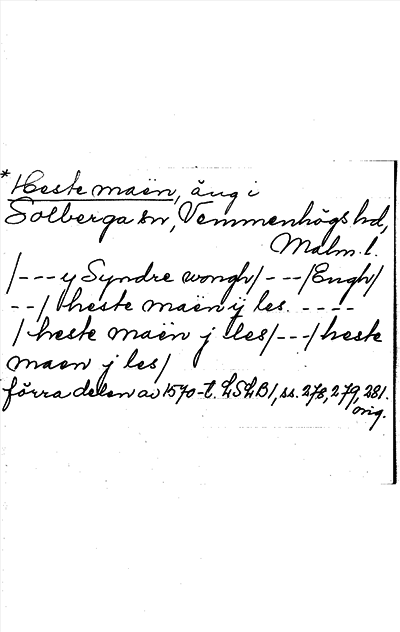 *Heste maën, äng i
Solberga sn, Vemmenhögs hd,
Malm. l.
/--- y Syndre wongh/---/Engh/
--/ heste maën ij les. ----
/ heste maën j lles/---/heste
maen j les/
förra delen av 1570-t. LSLB1, ss. 278, 279, 281.
orig.